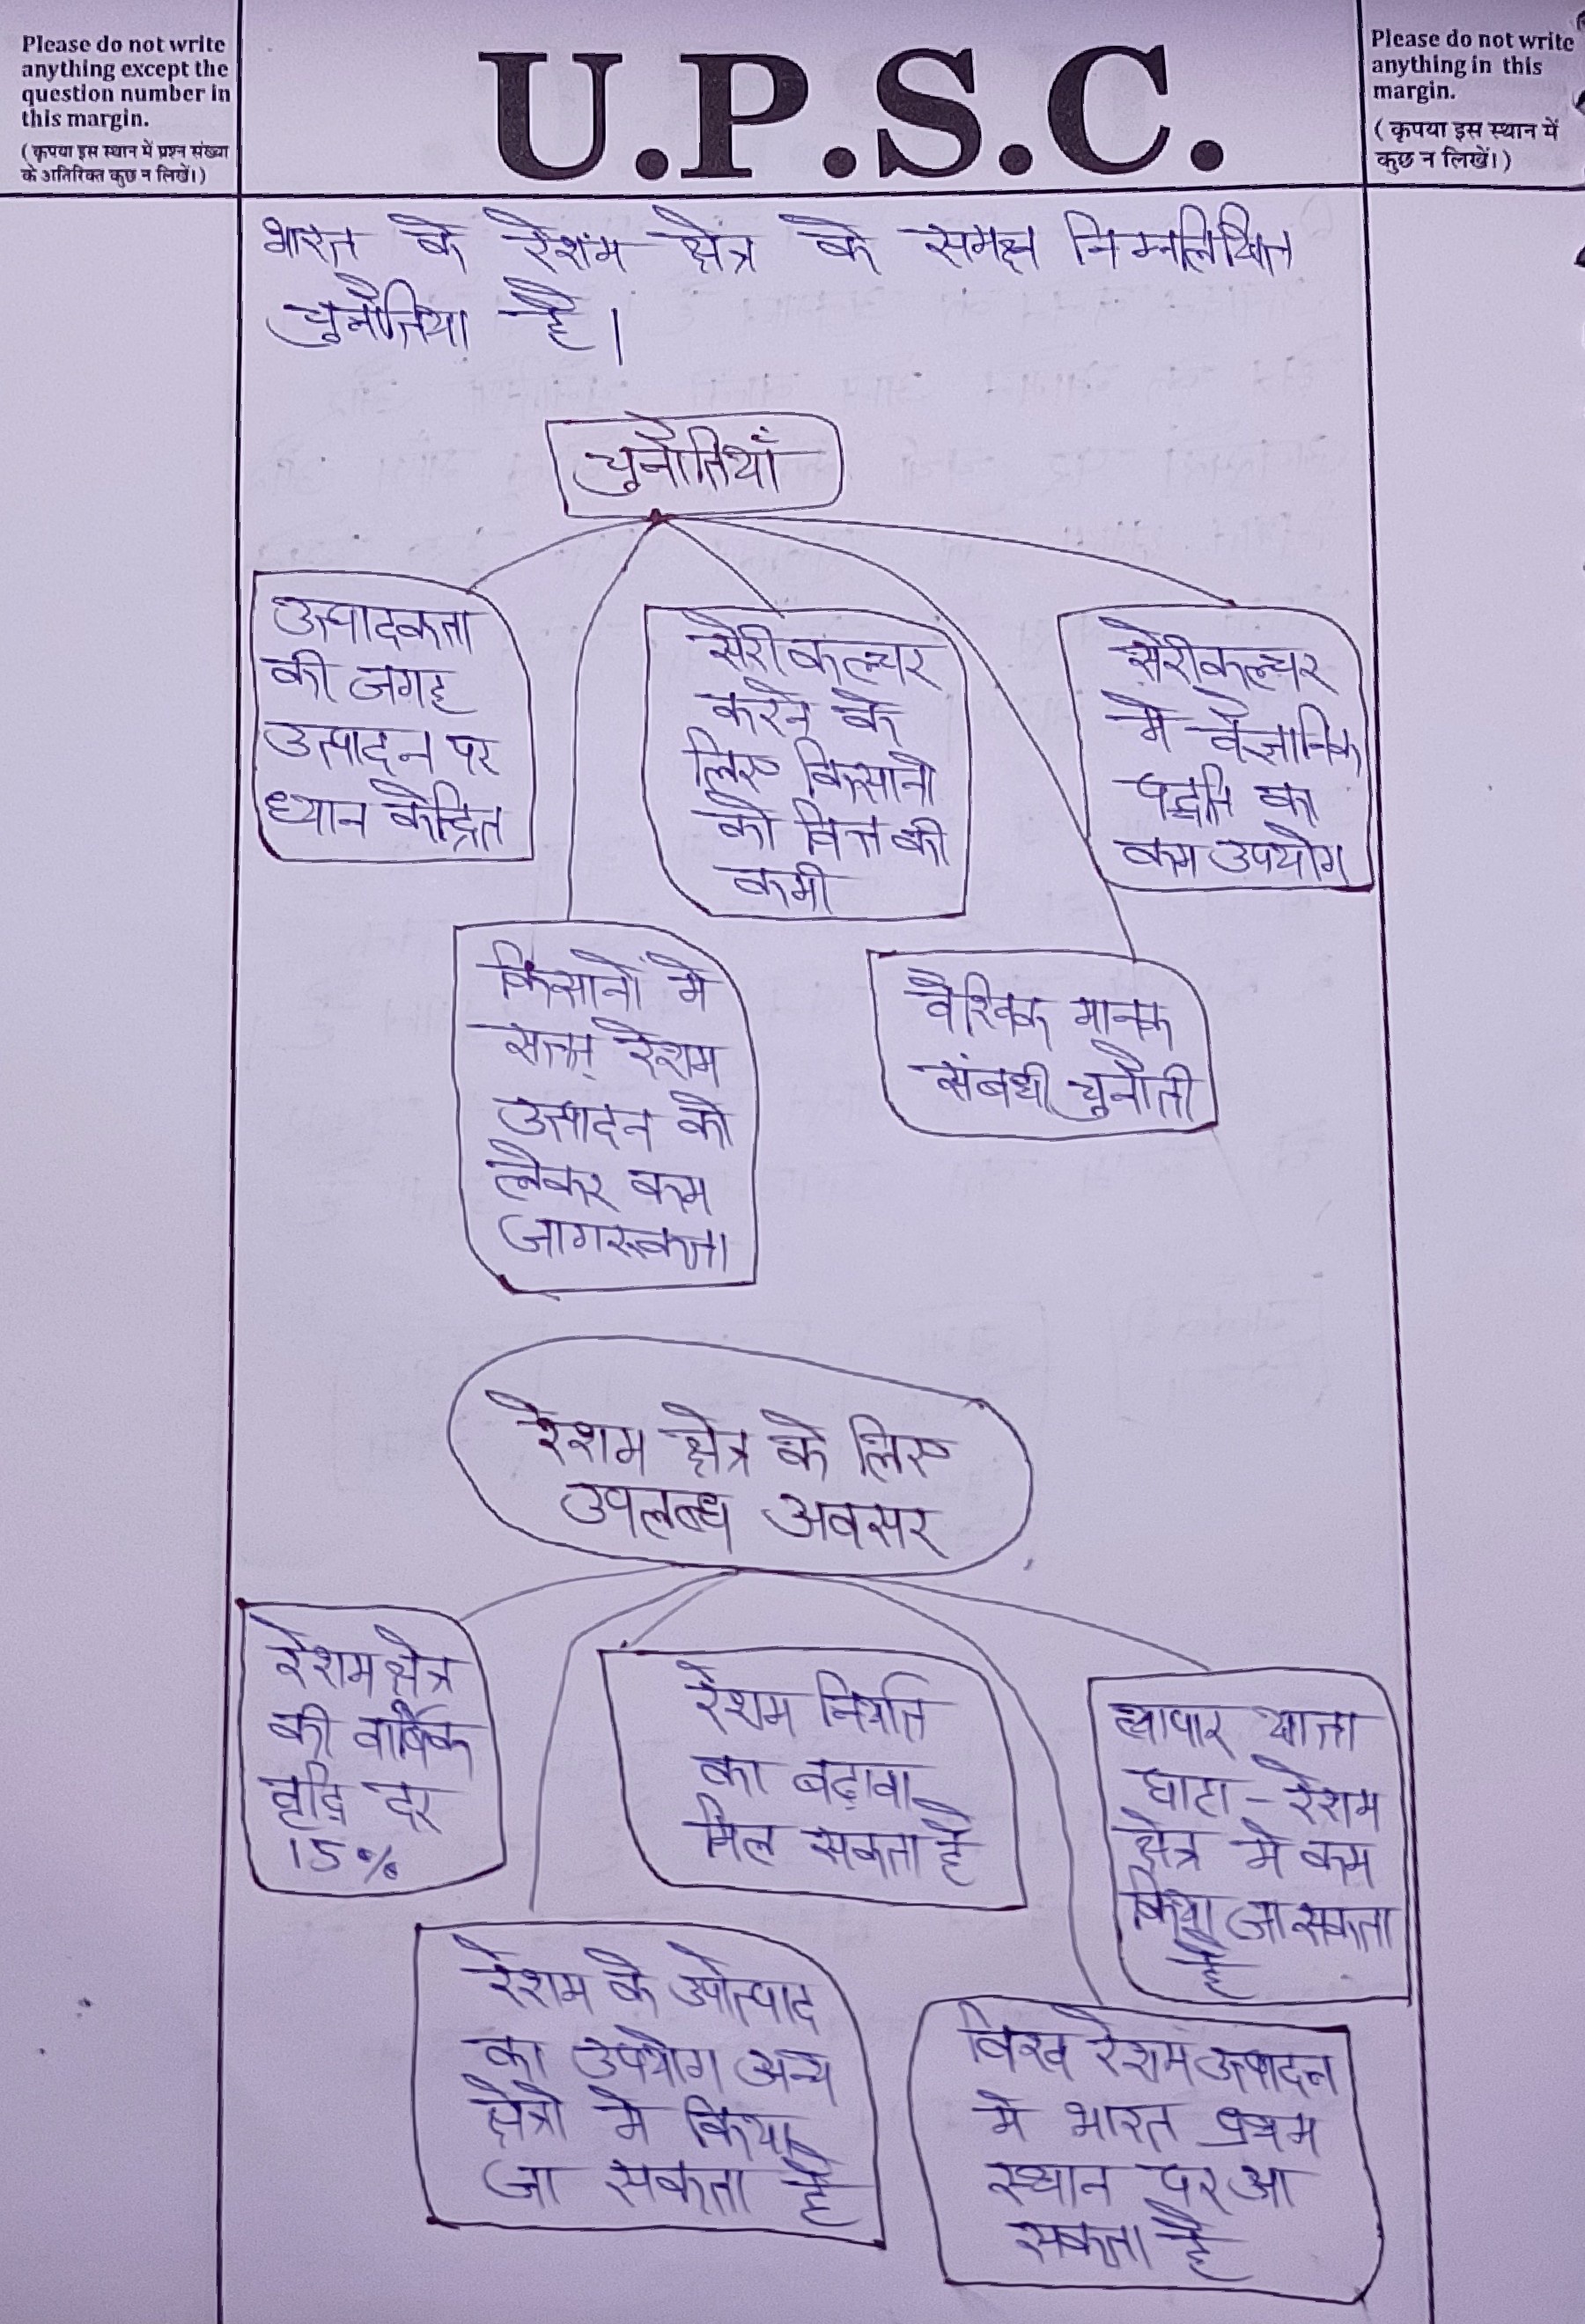 Please do not write
anything except the
question number in
this margin.
(कृपया इस स्थान में प्रश्न संख्या
के अतिरिक्त कुछ न लिखें।)
U.P.S.C.
Please do not write
anything in this
margin.
(कृपया इस स्थान में
कुछ न लिखें।)
भारत के रेशम क्षेत्र के समक्ष निम्नलिखित
चुनौतिया है।
चुनौतियाँ
उत्पादकता
की जगह
उत्पादन पर
ध्यान केंद्रित
सेरीकल्चर
करने के
लिए किसानो
को वित्त की
कमी
सेरीकल्चर
मे वैज्ञानिक
पद्धति का
कम उपयोग
किसानों मे
सतत् रेशम
उत्पादन को
लेकर कम
जागरूकता
वैश्विक मानक
संबधी चुनौती
रेशम क्षेत्र के लिए
उपलब्ध अवसर
रेशम क्षेत्र
की वार्षिक
वृद्धि दर
15%
रेशम निर्यात
का बढ़ावा
मिल सकता है
व्यापार खाता
घाटा - रेशम
क्षेत्र मे कम
किया जा सकता
है
रेशम के उपोत्पाद
का उपयोग अन्य
क्षेत्रो मे किया
जा सकता है
विश्व रेशम उत्पादन
मे भारत प्रथम
स्थान पर आ
सकता है